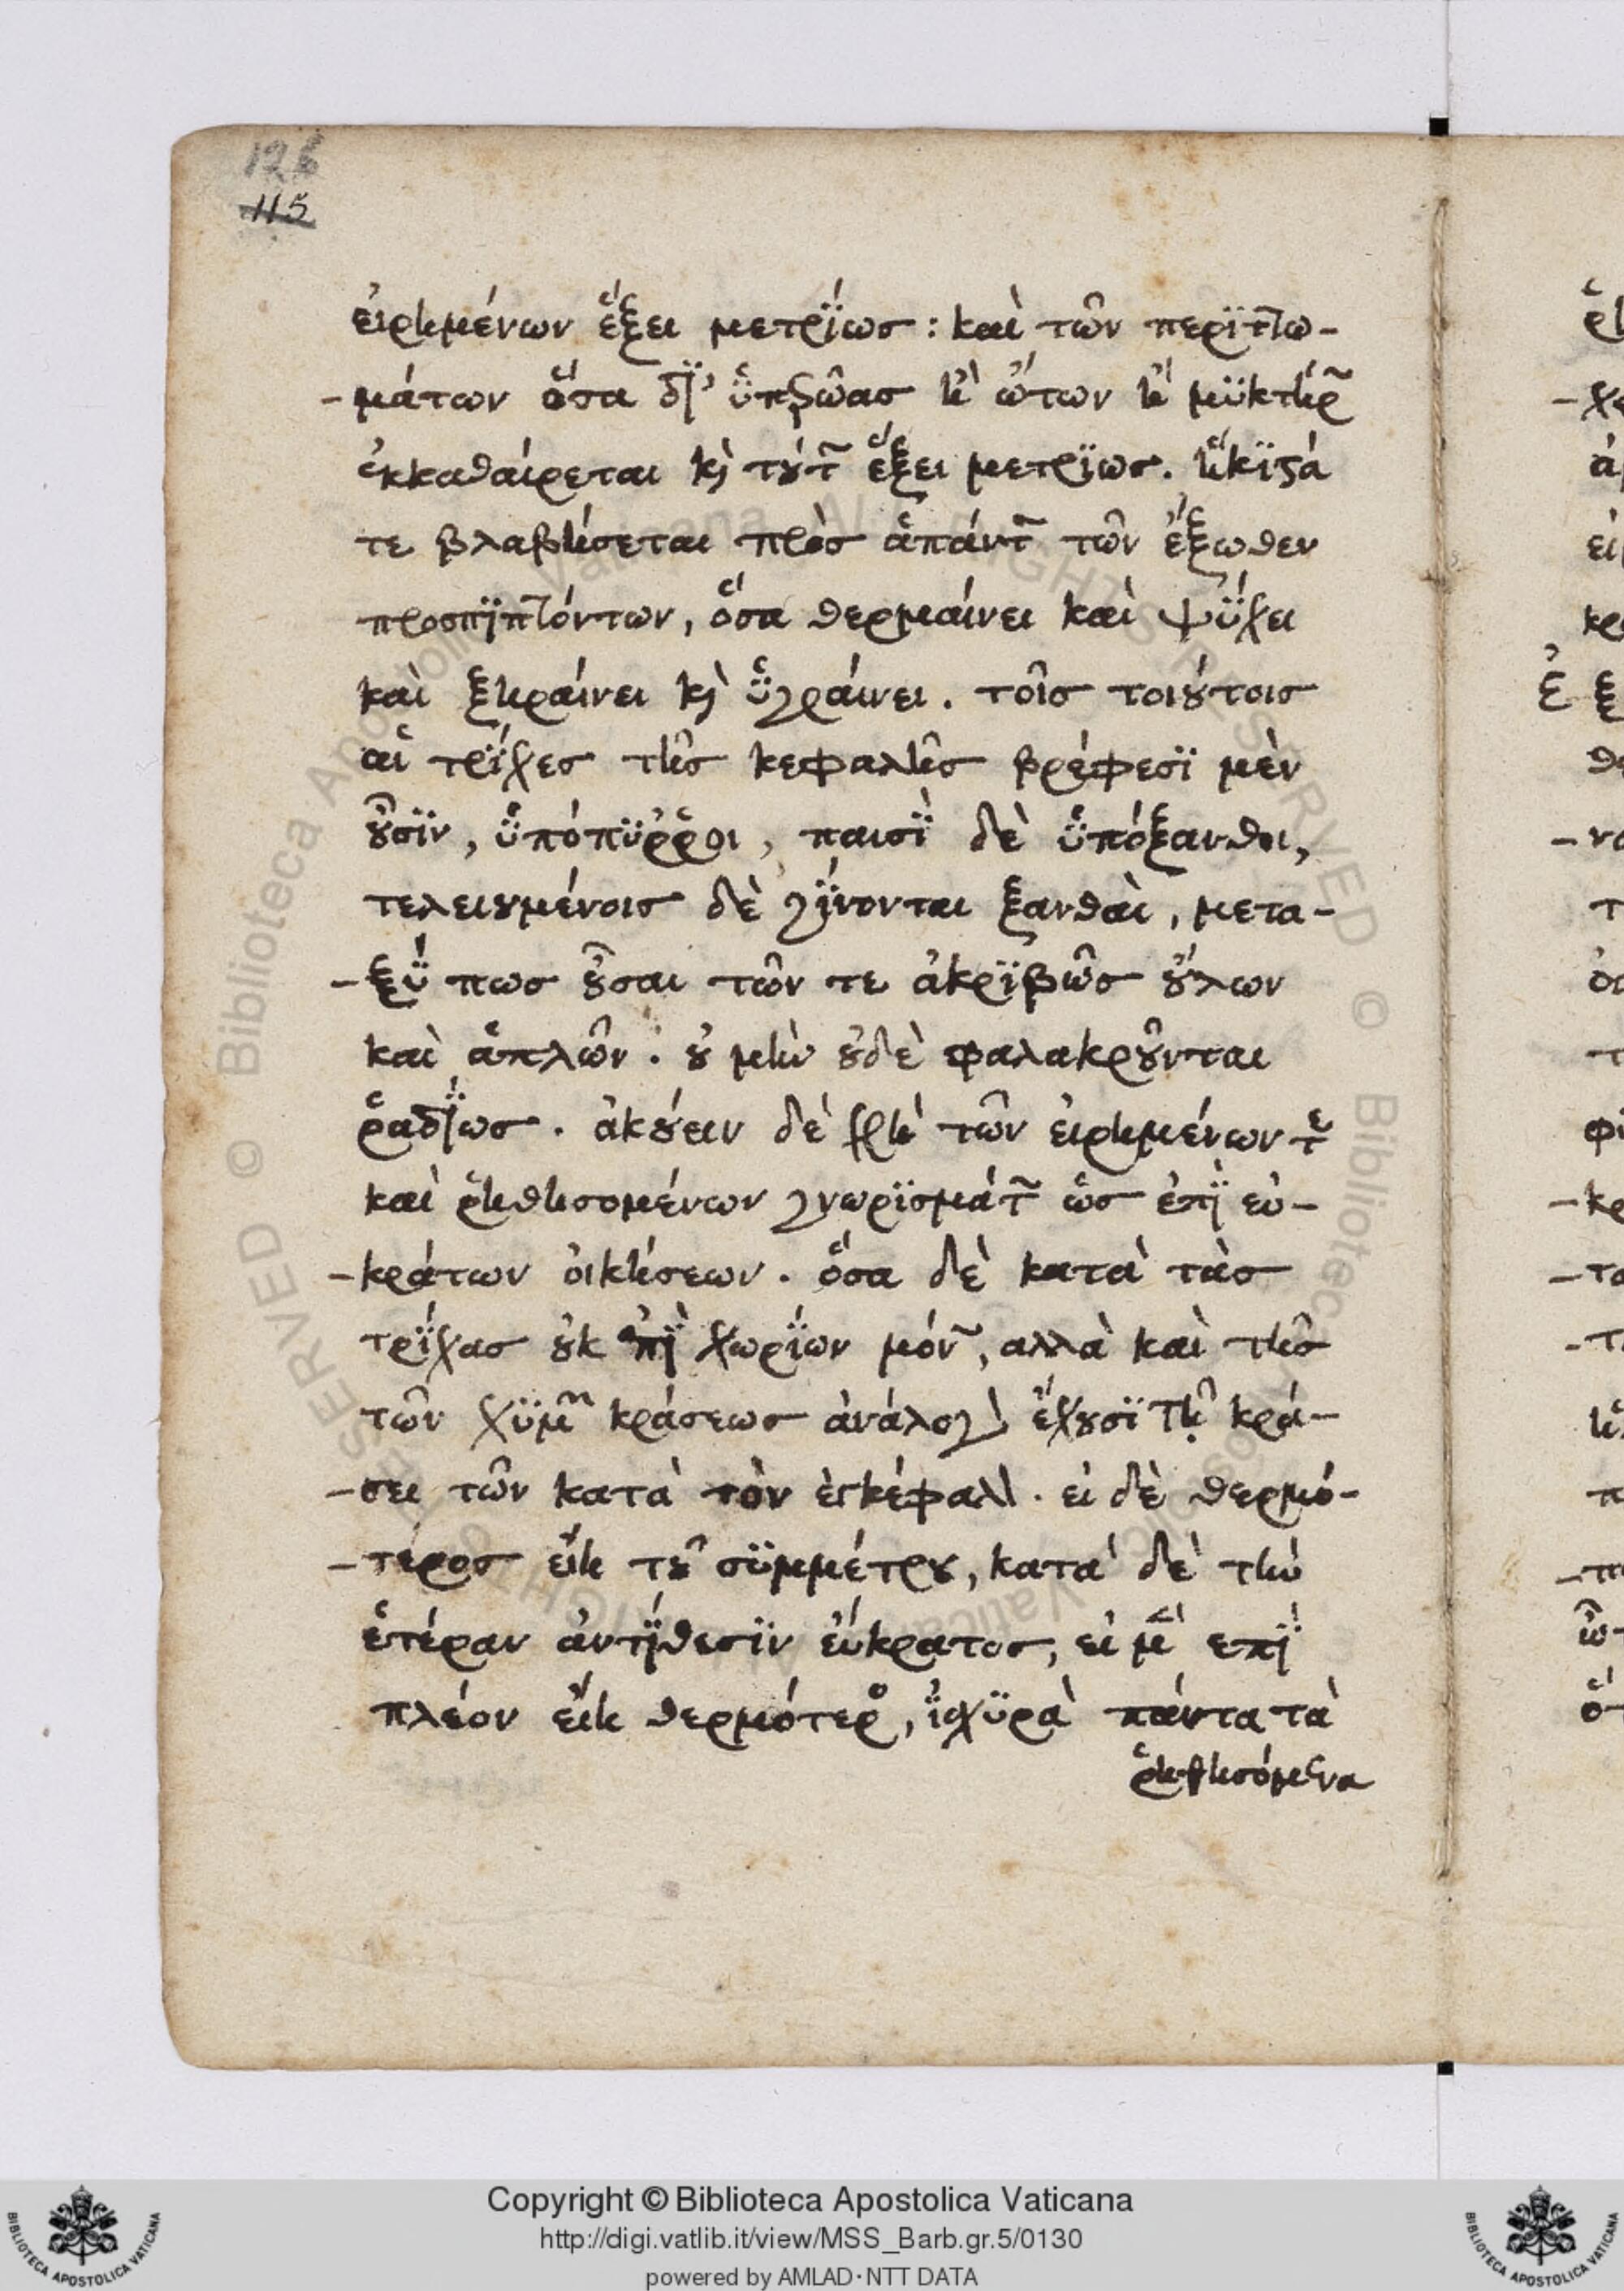 126
115
εἰρημένων ἕξει μετρίως : καὶ τῶν περιττω-
-μάτων ὅσα δι' ὑπερώας ἢ ὤτων ἢ μυκτήρ~
ἐκκαθαίρεται κ̀ τούτ~ ἕξει μετρίως. ἥκιστά
τε βλαβήσεται πρὸς ἁπάντ~ τῶν ἔξωθεν
προσπιπτόντων, ὅσα θερμαίνει καὶ ψύχει
καὶ ξηραίνει κ̀ ὑγραίνει. τοῖς τοιούτοις
αἱ τρίχες τῆς κεφαλῆς βρέφεσι μὲν
οὖσιν, ὑπόπυῤῥοι, παισὶ δὲ ὑπόξανθοι,
τελειουμένοις δὲ γίνονται ξανθαὶ, μετα-
-ξύ πως οὖσαι τῶν τε ἀκριβῶς οὔλων
καὶ ἁπλῶν. οὐ μὴν οὐδὲ φαλακροῦνται
ῥαδίως. ἀκούειν δὲ χρὴ τῶν εἰρημένων τε
καὶ ῥηθησομένων γνωρισμάτ~ ὡς ἐπὶ εὐ-
-κράτων οἰκήσεων. ὅσα δὲ κατὰ τὰς
τρίχας οὐκ ἐπὶ χωρίων μόν~, αλλὰ καὶ τῆς
τῶν χυμ~ κράσεως ἀνάλογ ἔχουσι τῇ κρά-
-σει τῶν κατὰ τὸν ἐγκέφαλ. εἰ δὲ θερμό-
-τερος εἴη τοῦ συμμέτρου, κατὰ δὲ τὴν
ἑτέραν ἀντίθεσιν εὔκρατος, εἰ μὲν επὶ
πλέον εἴη θερμότερο, ἰσχυρὰ πάντα τὰ
ῥηθησόμενα
Copyright © Biblioteca Apostolica Vaticana
http://digi.vatlib.it/view/MSS_Barb.gr.5/0130
powered by AMLAD·NTT DATA